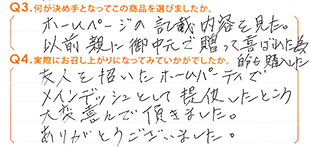 Q3.何が決め手となってこの商品を選びましたか。
ホームページの記載内容を見た。
以前親に御中元で贈って喜ばれた為
購入した
Q4.実際にお召し上がりになってみていかがでしたか。
友人を招いたホームパーティで
メインデッシュとして提供したところ
大変喜んで頂きました。
ありがとうございました。